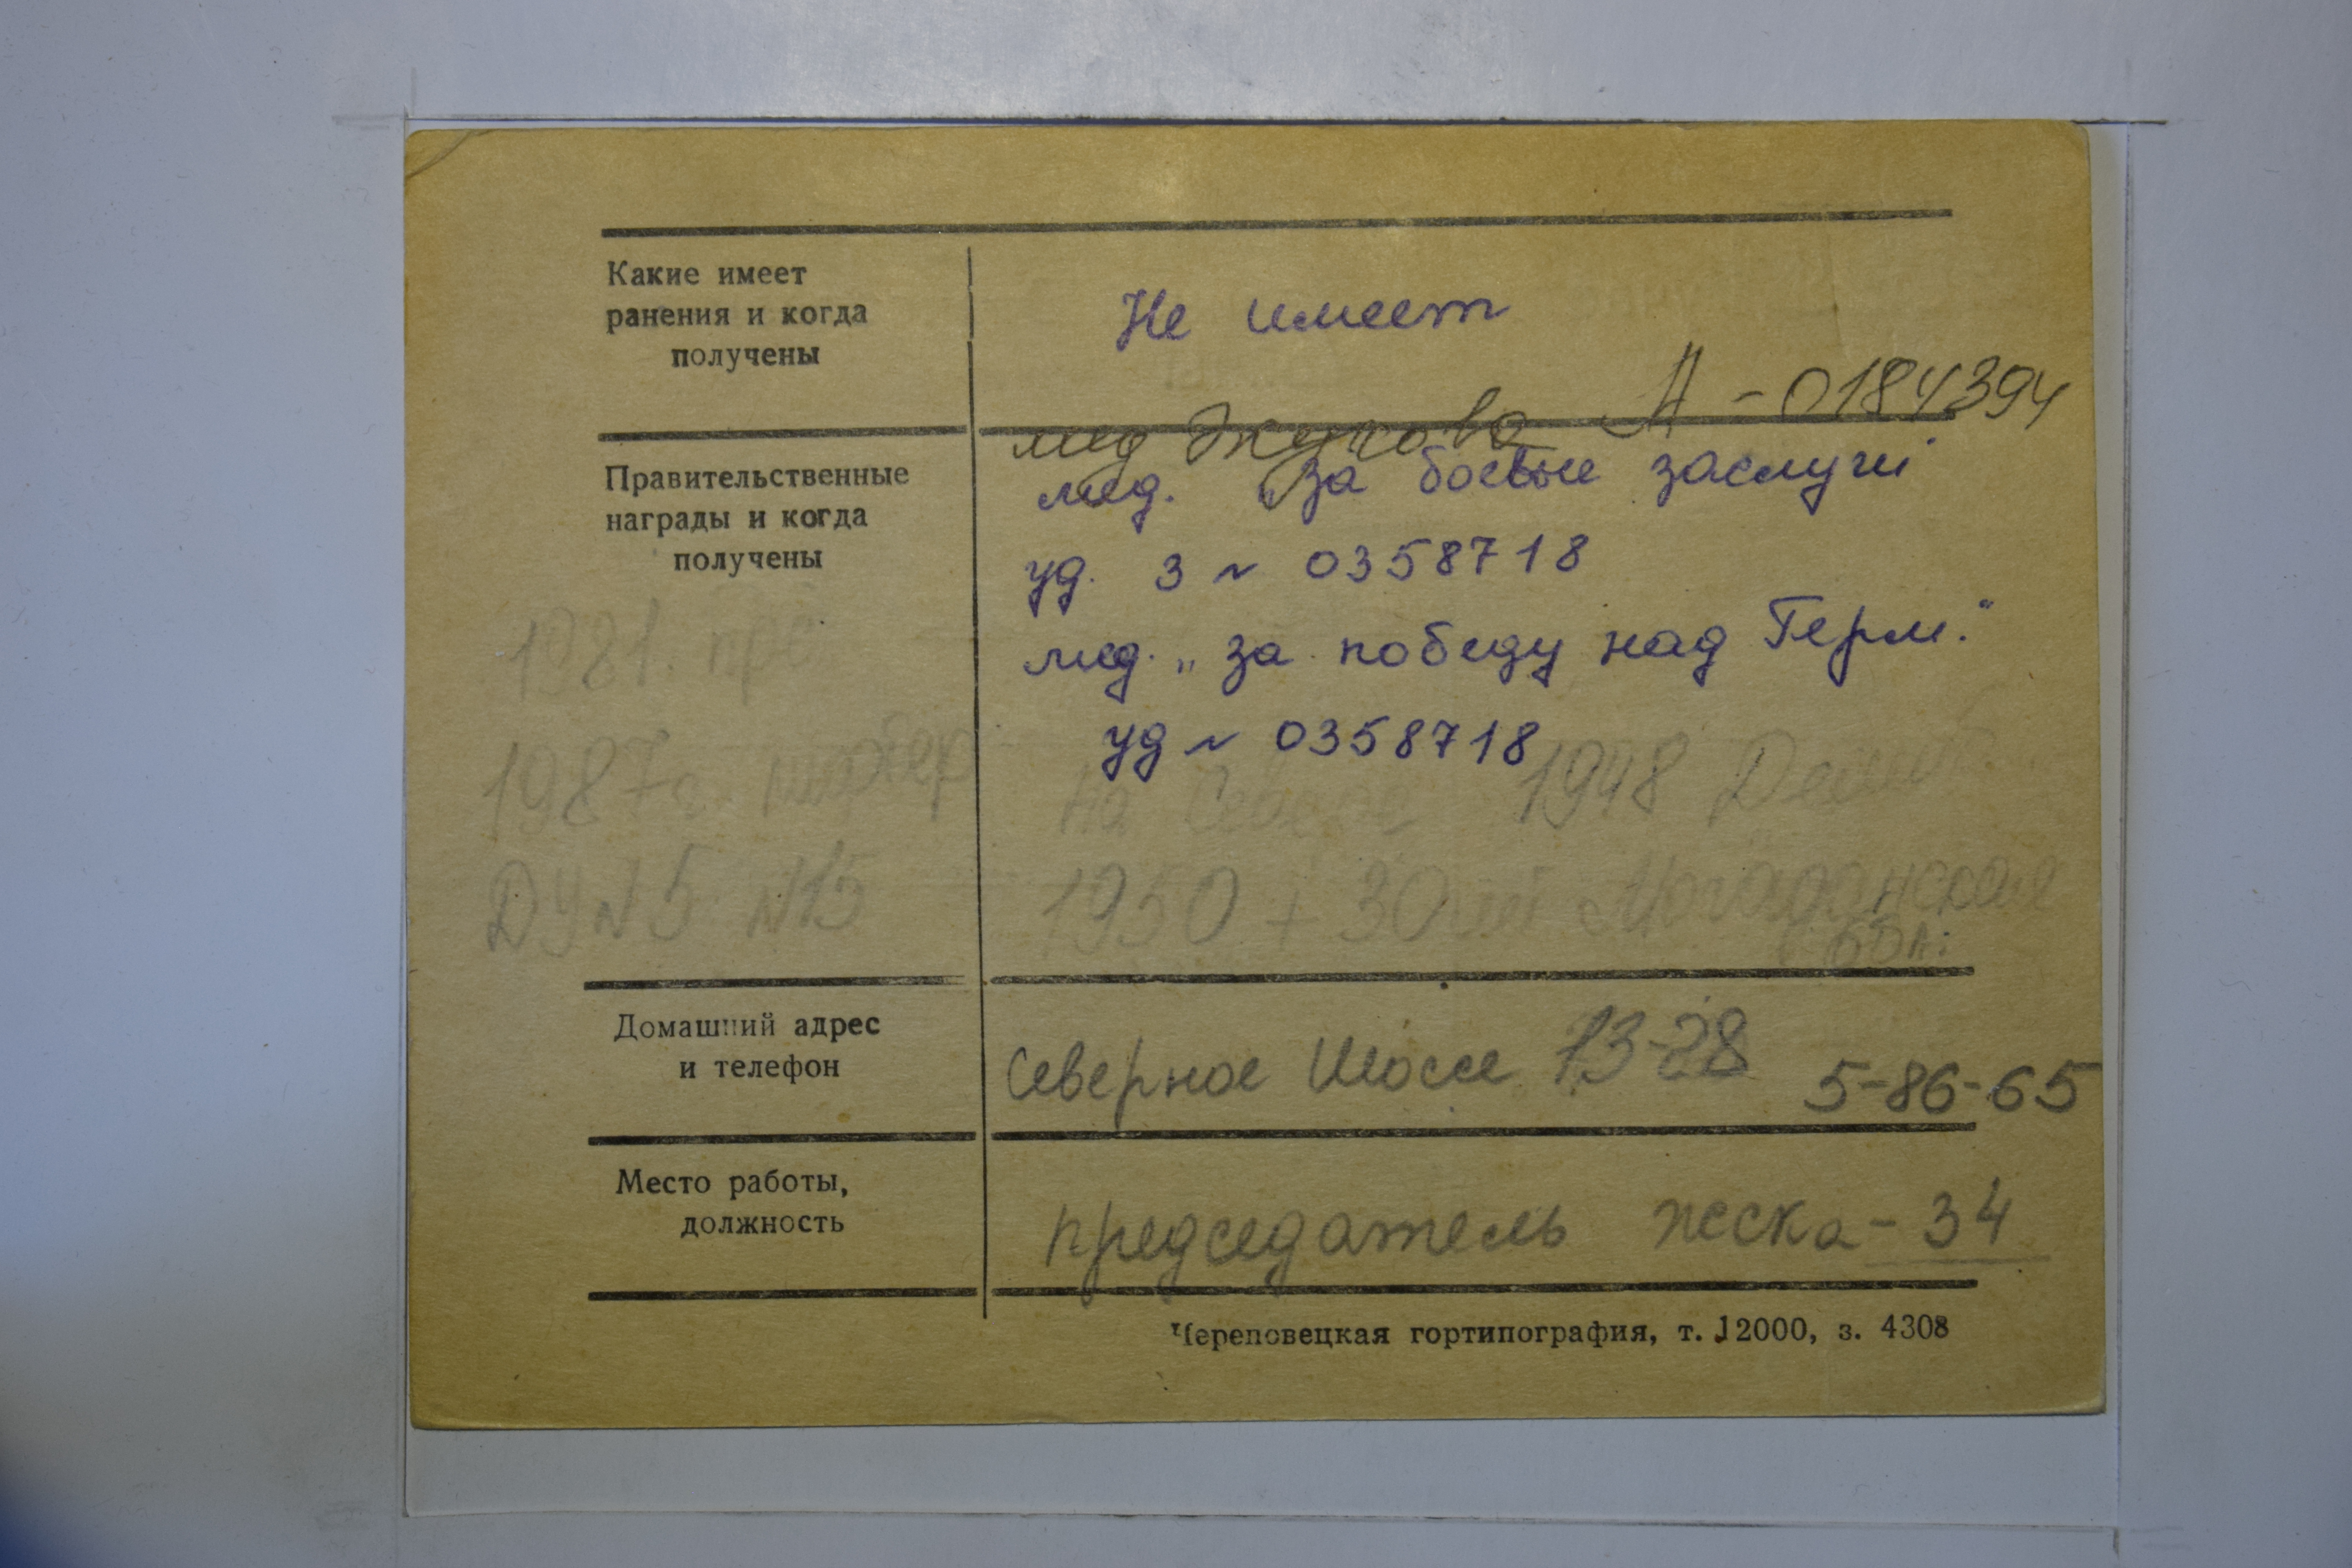 Какие имеет
ранения и когда
получены
Не имеет
мед Жукова А - 0184394
Правительственные
награды и когда
получены
мед. „За боевые заслуги
уд. З № 0358718
мед. „за победу над Герм."
уд № 0358718
1981.
1987г.
ДУ №5 №15
на Севере 1948
1950 + 30 лет Магаданская
обл.
Домашний адрес
и телефон
Северное Шоссе 13-28 5-86-65
Место работы,
должность
председатель жска - 34
Череповецкая гортипография, т. 12000, з. 4308